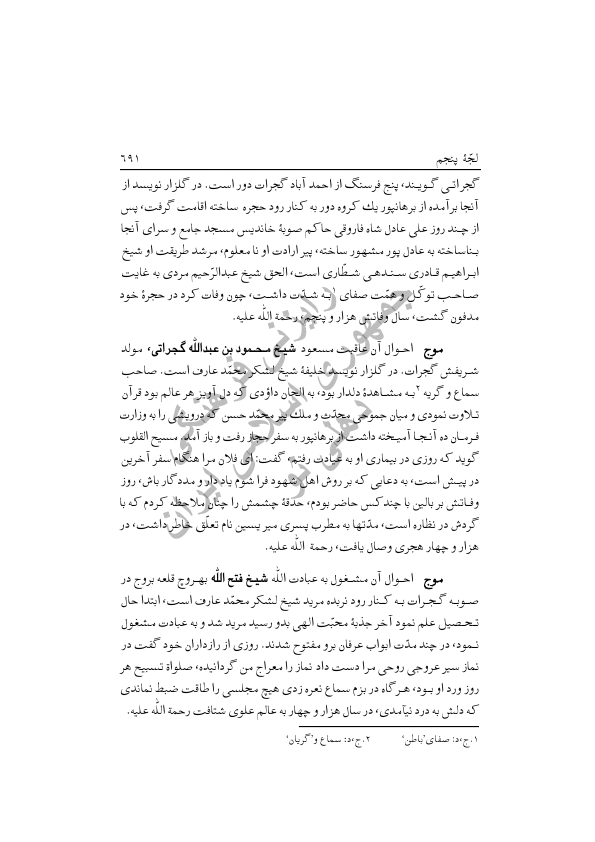 لجّهٔ پنجم ۶۹۱
گجراتی گویند، پنج فرسنگ از احمد آباد گجرات دور است. در گلزار نویسد از
آنجا برآمده از برهانپور یك کروه دور به کنار رود حجره ساخته اقامت گرفت، پس
از چند روز علی عادل شاه فاروقی حاکم صوبهٔ خاندیس مسجد جامع و سرای آنجا
بناساخته به عادل پور مشهور ساخته، پیر ارادت او نا معلوم، مرشد طریقت او شیخ
ابراهیم قادری سندهی شطّاری است، الحق شیخ عبدالرّحیم مردی به غایت
صاحب توکّل و همّت صفای ۱ به شدّت داشت، چون وفات کرد در حجرهٔ خود
مدفون گشت، سال وفاتش هزار و پنجم، رحمة اللّه علیه.
موج احوال آن عاقبت مسعود شیخ محمود بن عبداللّه گجراتی، مولد
شریفش گجرات. در گلزار نویسد خلیفهٔ شیخ لشکر محمّد عارف است. صاحب
سماع و گریه ۲ به مشاهدهٔ دلدار بود، به الحان داؤدی که دل آویز هر عالم بود قرآن
تلاوت نمودی و میان جموحی محدّث و ملك پیر محمّد حسن که درویشی را به وزارت
فرمان ده آنجا آمیخته داشت از برهانپور به سفر حجاز رفت و باز آمد. مسیح القلوب
گوید که روزی در بیماری او به عبادت رفتم، گفت: ای فلان مرا هنگام سفر آخرین
در پیش است، به دعایی که بر روش اهل شهود فرا شوم یاد دار و مددگار باش، روز
وفاتش بر بالین با چند کس حاضر بودم، حدّقهٔ چشمش را چنان ملاحظه کردم که با
گردش در نظاره است، مدّتها به مطرب پسری میر یسین نام تعلّق خاطر داشت، در
هزار و چهار هجری وصال یافت، رحمة اللّه علیه.
موج احوال آن مشغول به عبادت اللّه شیخ فتح اللّه بهروچ قلعه بروج در
صوبه گجرات به کنار رود نربده مرید شیخ لشکر محمّد عارف است، ابتدا حال
تحصیل علم نمود آخر جذبهٔ محبّت الهی بدو رسید مرید شد و به عبادت مشغول
نمود، در چند مدّت ابواب عرفان برو مفتوح شدند. روزی از رازداران خود گفت در
نماز سیر عروجی روحی مرا دست داد نماز را معراج من گردانیده، صلواة تسبیح هر
روز ورد او بود، هرگاه در بزم سماع نعره زدی هیچ مجلسی را طاقت ضبط نماندی
که دلش به درد نیآمدی، در سال هزار و چهار به عالم علوی شتافت رحمة اللّه علیه.
۱.ج،د: صفای'باطن' ۲.ج،د: سماع و'گریان'
رایزنی فرهنگی
جمهوری اسلامی ایران
دهلی نو